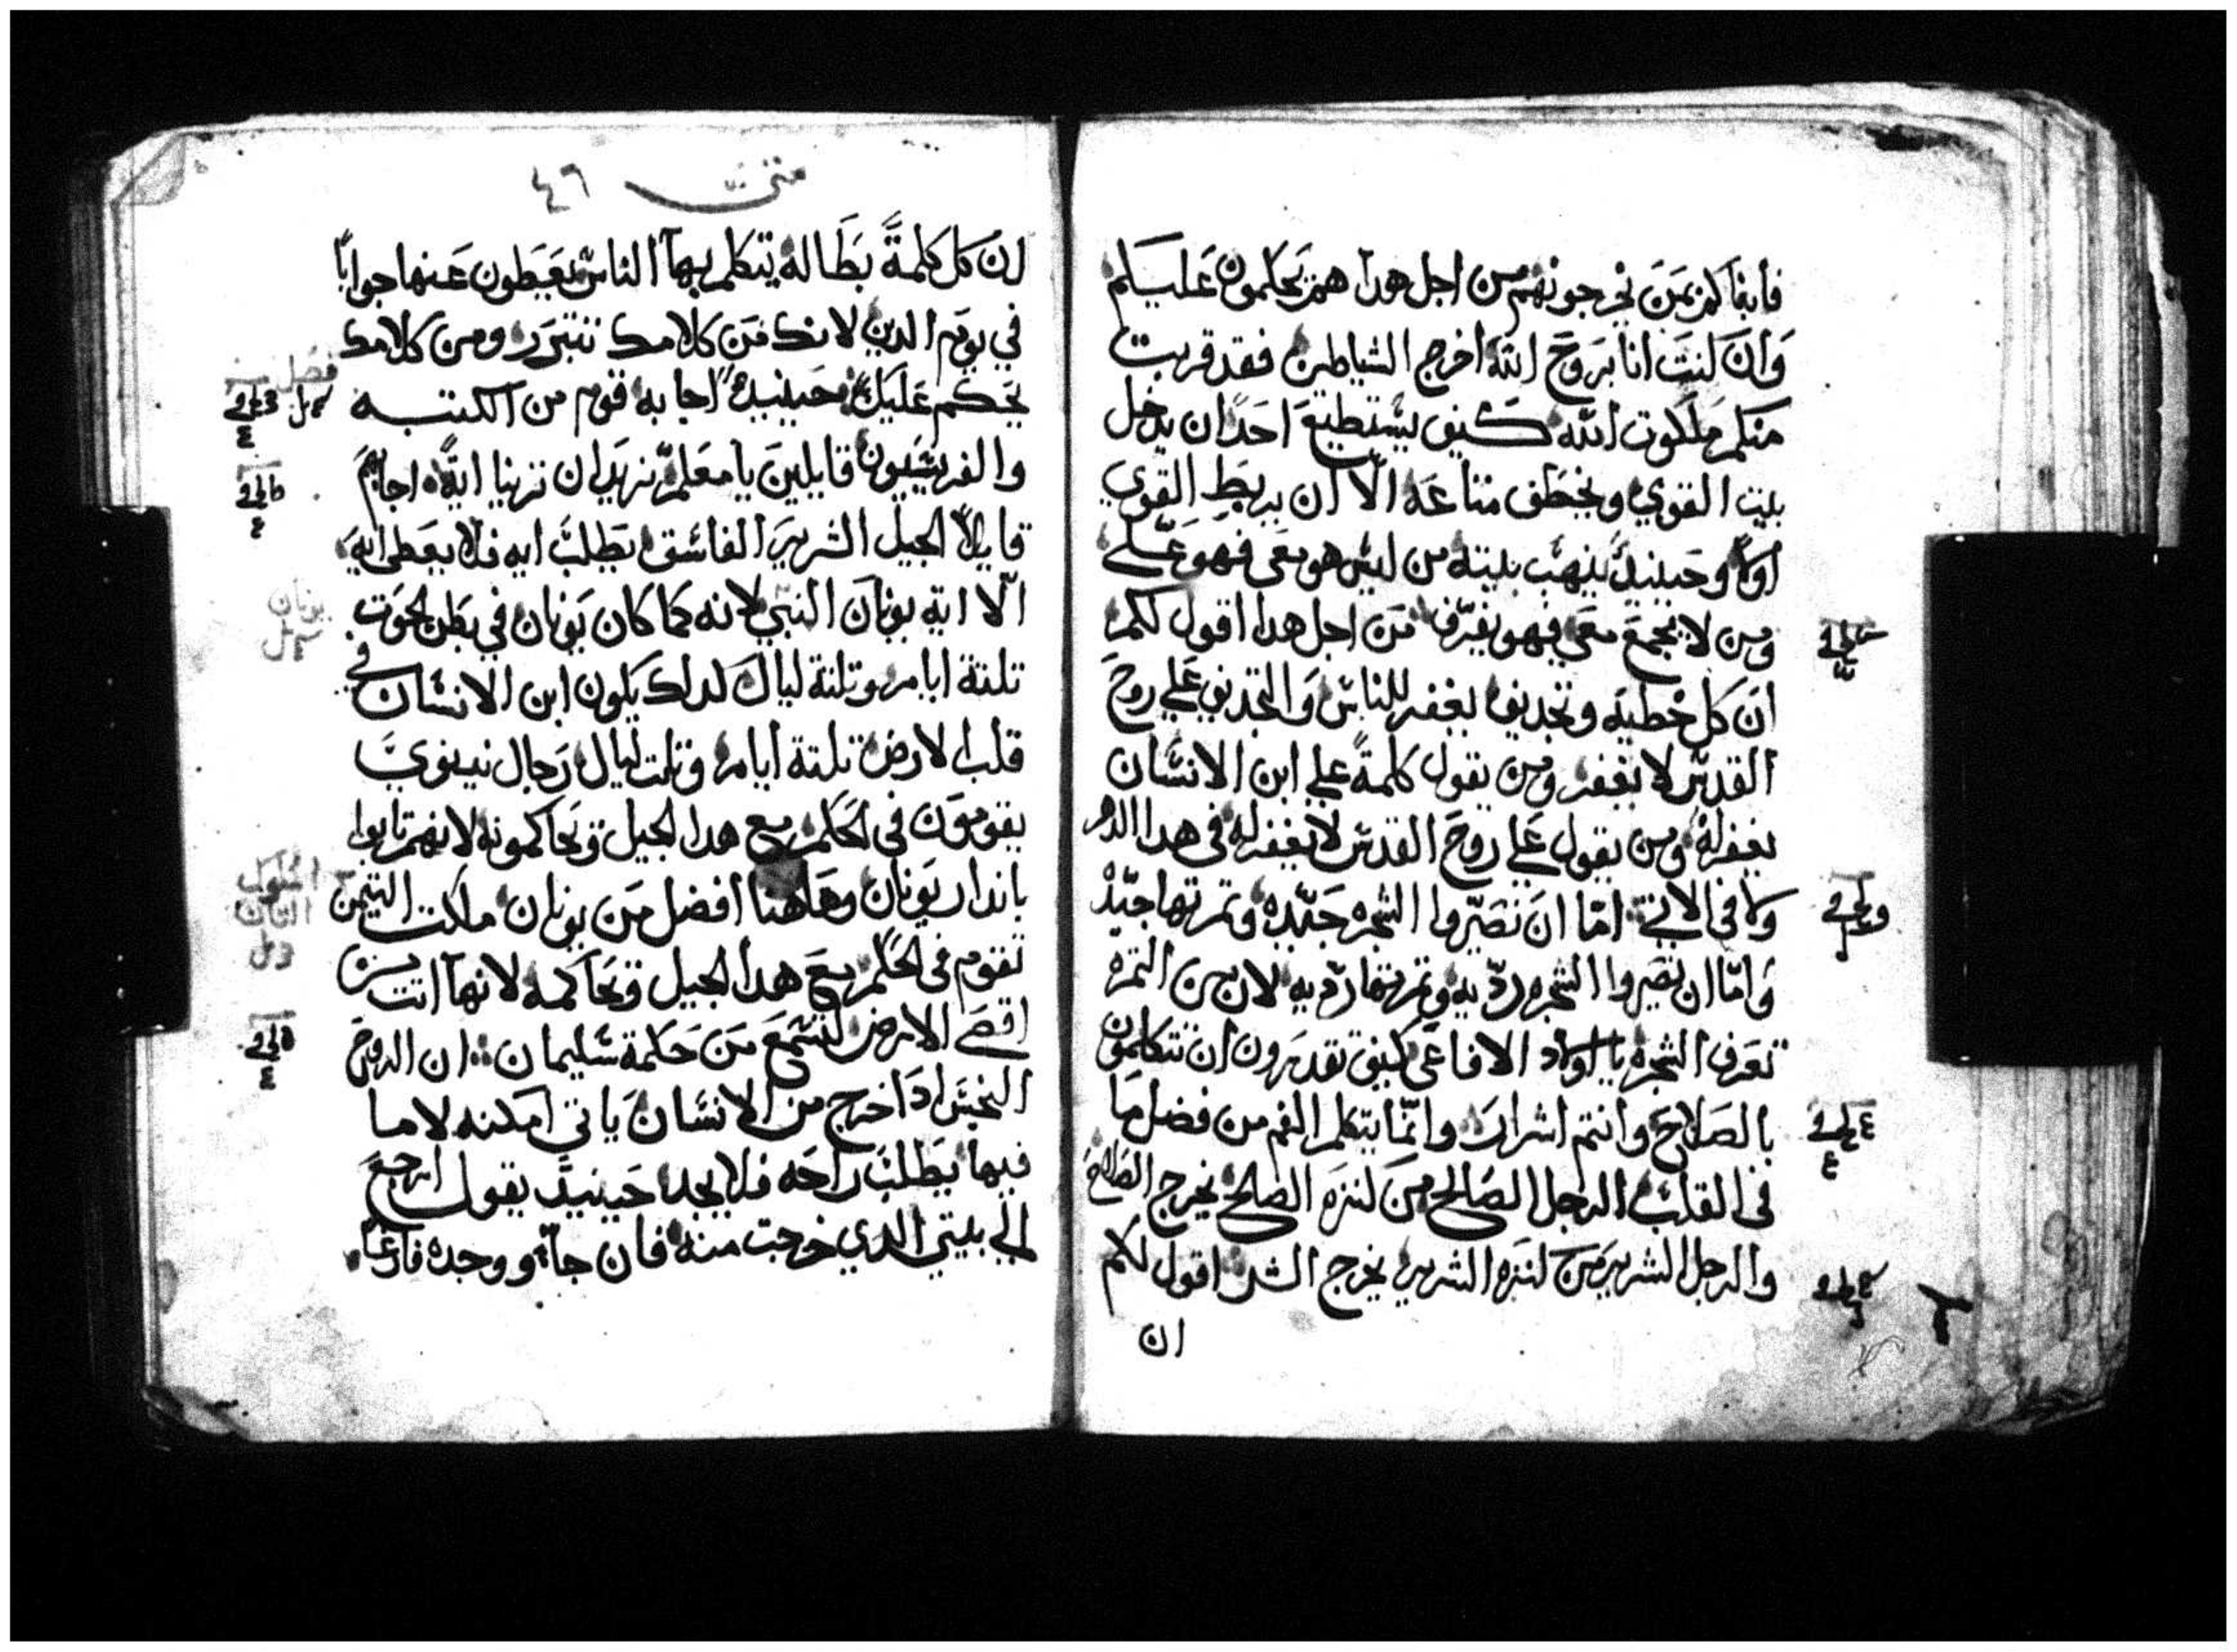 فابناكم بمن يخرجونهم من اجل هدا هم يحكمون عليكم
وان كنت انا بروح الله اخرج الشياطين فقد قربت
منكم ملكوت الله كيف يستطيع احدا ان يدخل
بيت القوي ويخطف متاعه الا ان يربط القوي
اولا وحينيد ينهب بيته من ليس هو معي فهو علي
ومن لا يجمع معي فهو يفرق من اجل هدا اقول لكم
ان كل خطيه وتجديف يغفر للناس والتجديف علي روح
القدس لا يغفر ومن يقول كلمة علي ابن الانسان
يغفر له ومن يقول علي روح القدس لا يغفر له في هدا الدهر
ولا في الاتي اما ان تصيروا الشجره جيده وثمرتها جيده
واما ان تصيروا الشجره رديه وثمرتها رديه لان من الثمره
تعرف الشجره يا اولاد الافاعي كيف تقدرون ان تتكلمون
بالصلاح وانتم اشرار وانما يتكلم الفم من فضل ما
في القلب الرجل الصالح من كنزه الصالح يخرج الصلاح
والرجل الشرير من كنزه الشرير يخرج الشر اقول لكم
ان
متى ٤٦
ان كل كلمة بطاله يتكلم بها الناس يعطون عنها جوابا
في يوم الدين لانك من كلامك تتبرر ومن كلامك
يحكم عليك وحينيد اجابه قوم من الكتبه
والفريسيون قايلين يا معلم نريد ان ترينا اية اجابهم
قايلا الجيل الشرير الفاسق يطلب ايه فلا يعطي ايه
الا اية يونان النبي لانه كما كان يونان في بطن الحوت
تلتة ايام وتلتة ليال كدلك يكون ابن الانسان في
قلب الارض تلتة ايام وتلت ليال رجال نينوي
يقومون في الحكم مع هدا الجيل وتحاكمونه لانهم تابوا
باندار يونان وهاهنا افضل من يونان ملكت التيمن
تقوم في الحكم مع هدا الجيل وتحاكمه لانها اتت من
اقصي الارض لتسمع من حكمة سليمان ان الروح
النجس ادا خرج من الانسان ياتي امكنه لا ما
فيها يطلب راحه فلا يجد حينيد يقول ارجع
الي بيتي الدي خرجت منه فان جا ووجده فارغا
فصل
يونان